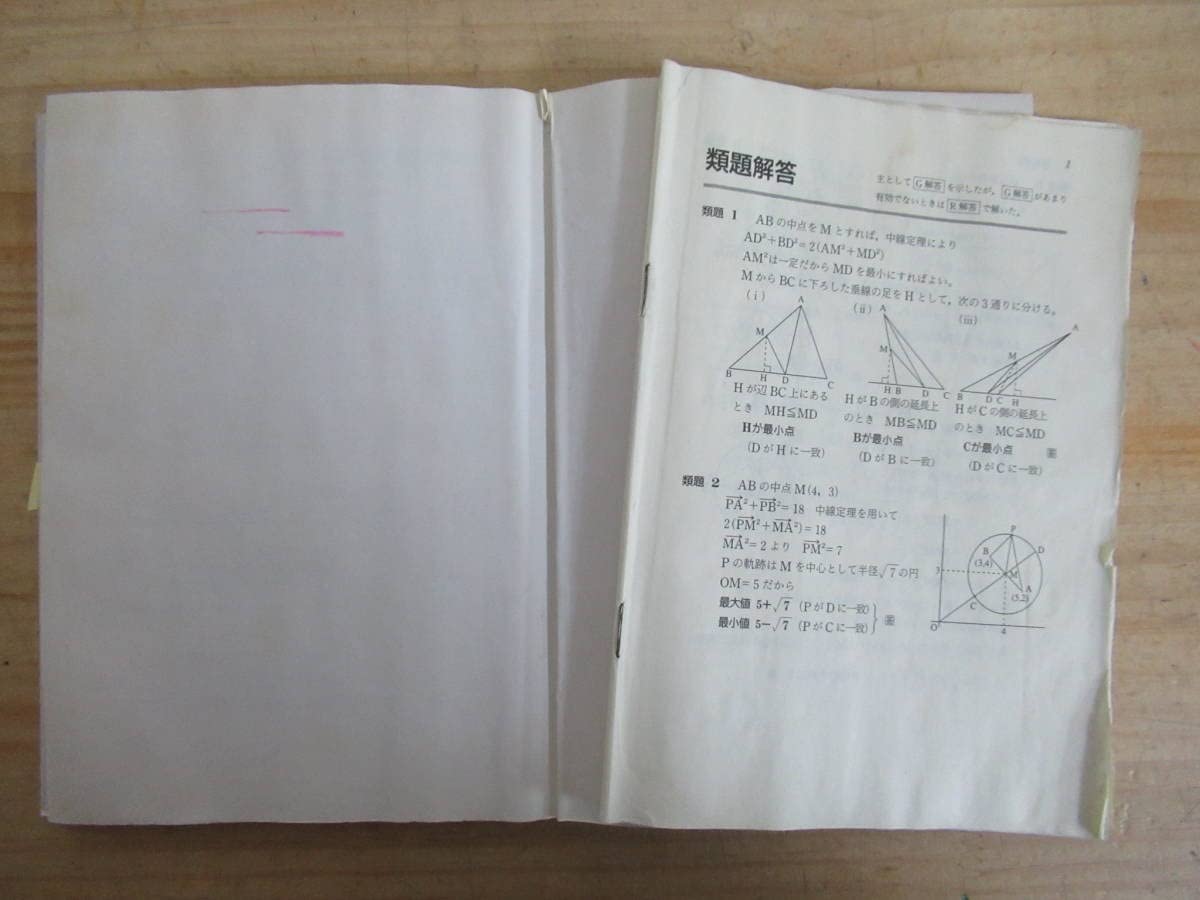 1
類題解答
主として G解答 を示したが，G解答 があまり
有効でないときは R解答 で解いた。
類題 1 ABの中点をMとすれば，中線定理により
AD²+BD²=2(AM²+MD²)
AM²は一定だからMDを最小にすればよい。
MからBCに下ろした垂線の足をHとして，次の3通りに分ける。
(ⅰ) (ⅱ) (ⅲ)
A A A
M M M
B H D C H B D C B D C H
Hが辺BC上にある HがBの側の延長上 HがCの側の延長上
とき MH≦MD のとき MB≦MD のとき MC≦MD
Hが最小点 Bが最小点 Cが最小点 答
(DがHに一致) (DがBに一致) (DがCに一致)
類題 2 ABの中点M(4, 3)
PA²+PB²=18 中線定理を用いて
2(PM²+MA²)=18
MA²=2より PM²=7
Pの軌跡はMを中心として半径√7の円
OM=5だから
最大値 5+√7 (PがDに一致)
最小値 5−√7 (PがCに一致) 答
P
B D
(3,4)
3 M
A
(5,2)
C
O 4